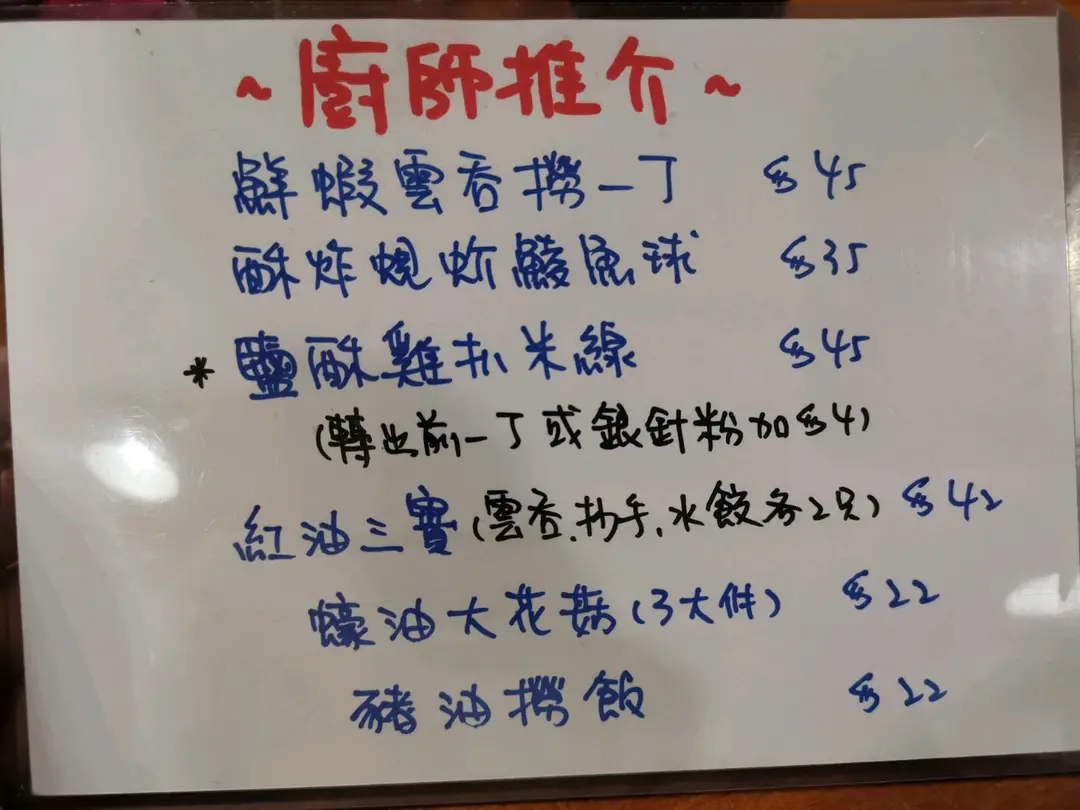 ~廚師推介~
鮮蝦雲吞撈一丁 $45
酥炸蜆蚧鯪魚球 $35
* 鹽酥雞扒米線 $45
(轉出前一丁或銀針粉加$4)
紅油三寶(雲吞.抄手,水餃各2只) $42
蠔油大花菇(3大件) $22
豬油撈飯 $22